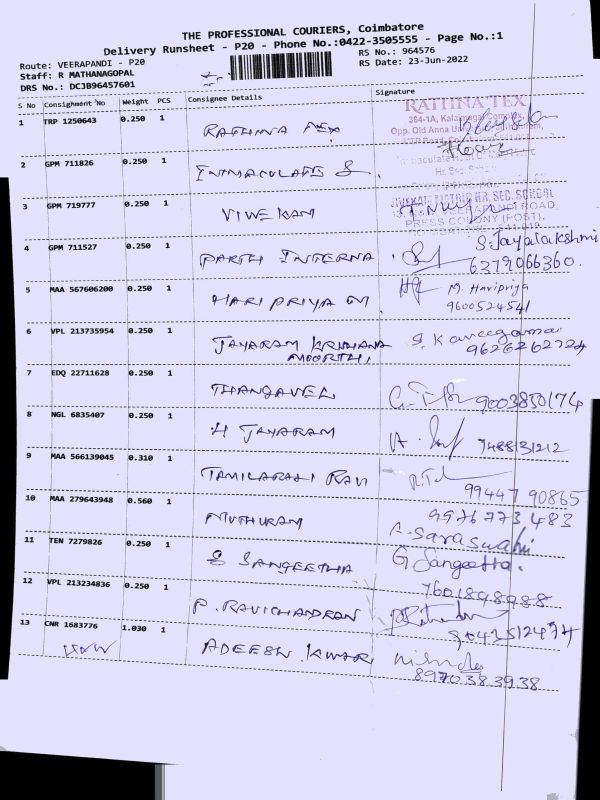 THE PROFESSIONAL COURIERS, Coimbatore
Delivery Runsheet - P20 - Phone No.:0422-3505555 - Page No.:1
Route: VEERAPANDI - P20
RS No.: 964576
Staff: R MATHANAGOPAL
RS Date: 23-Jun-2022
DRS No.: DC3B96457601
S No Consignment No Weight PCS Consignee Details Signature
RATHINA TEX
1 TRP 1250643 0.250 1 RATHINA TEX
2 GPM 711826 0.250 1 INMACULATE S.
3 GPM 719777 0.250 1 VIVEKAN
PRESS COLONY (POST),
4 GPM 711527 0.250 1 PARTH INTERNA S. Jayalakshmi
6379066360.
5 MAA 567606200 0.250 1 HARIPRIYA M M. Haripriya
9600524541
6 VPL 213735954 0.250 1 JAYARAM KRISHANA
MOORTHI,
9626262724
7 EDQ 22711628 0.250 1 THANGAVEL 9003850174
8 NGL 6835407 0.250 1 H JAYARAM 7488131212
9 MAA 566139045 0.310 1 TAMILARASI RAVI
99447 90865
10 MAA 279643948 0.560 1 MUTHURAM 9976773483
Saraswathi
11 TEN 7279826 0.250 1 S SANGEETHA G Sangeetha.
7601898988
12 VPL 213234836 0.250 1 P. RAVICHANDRAN
9043512474
13 CNR 1683776 1.030 1 ADEESH KUMAR
8970383938